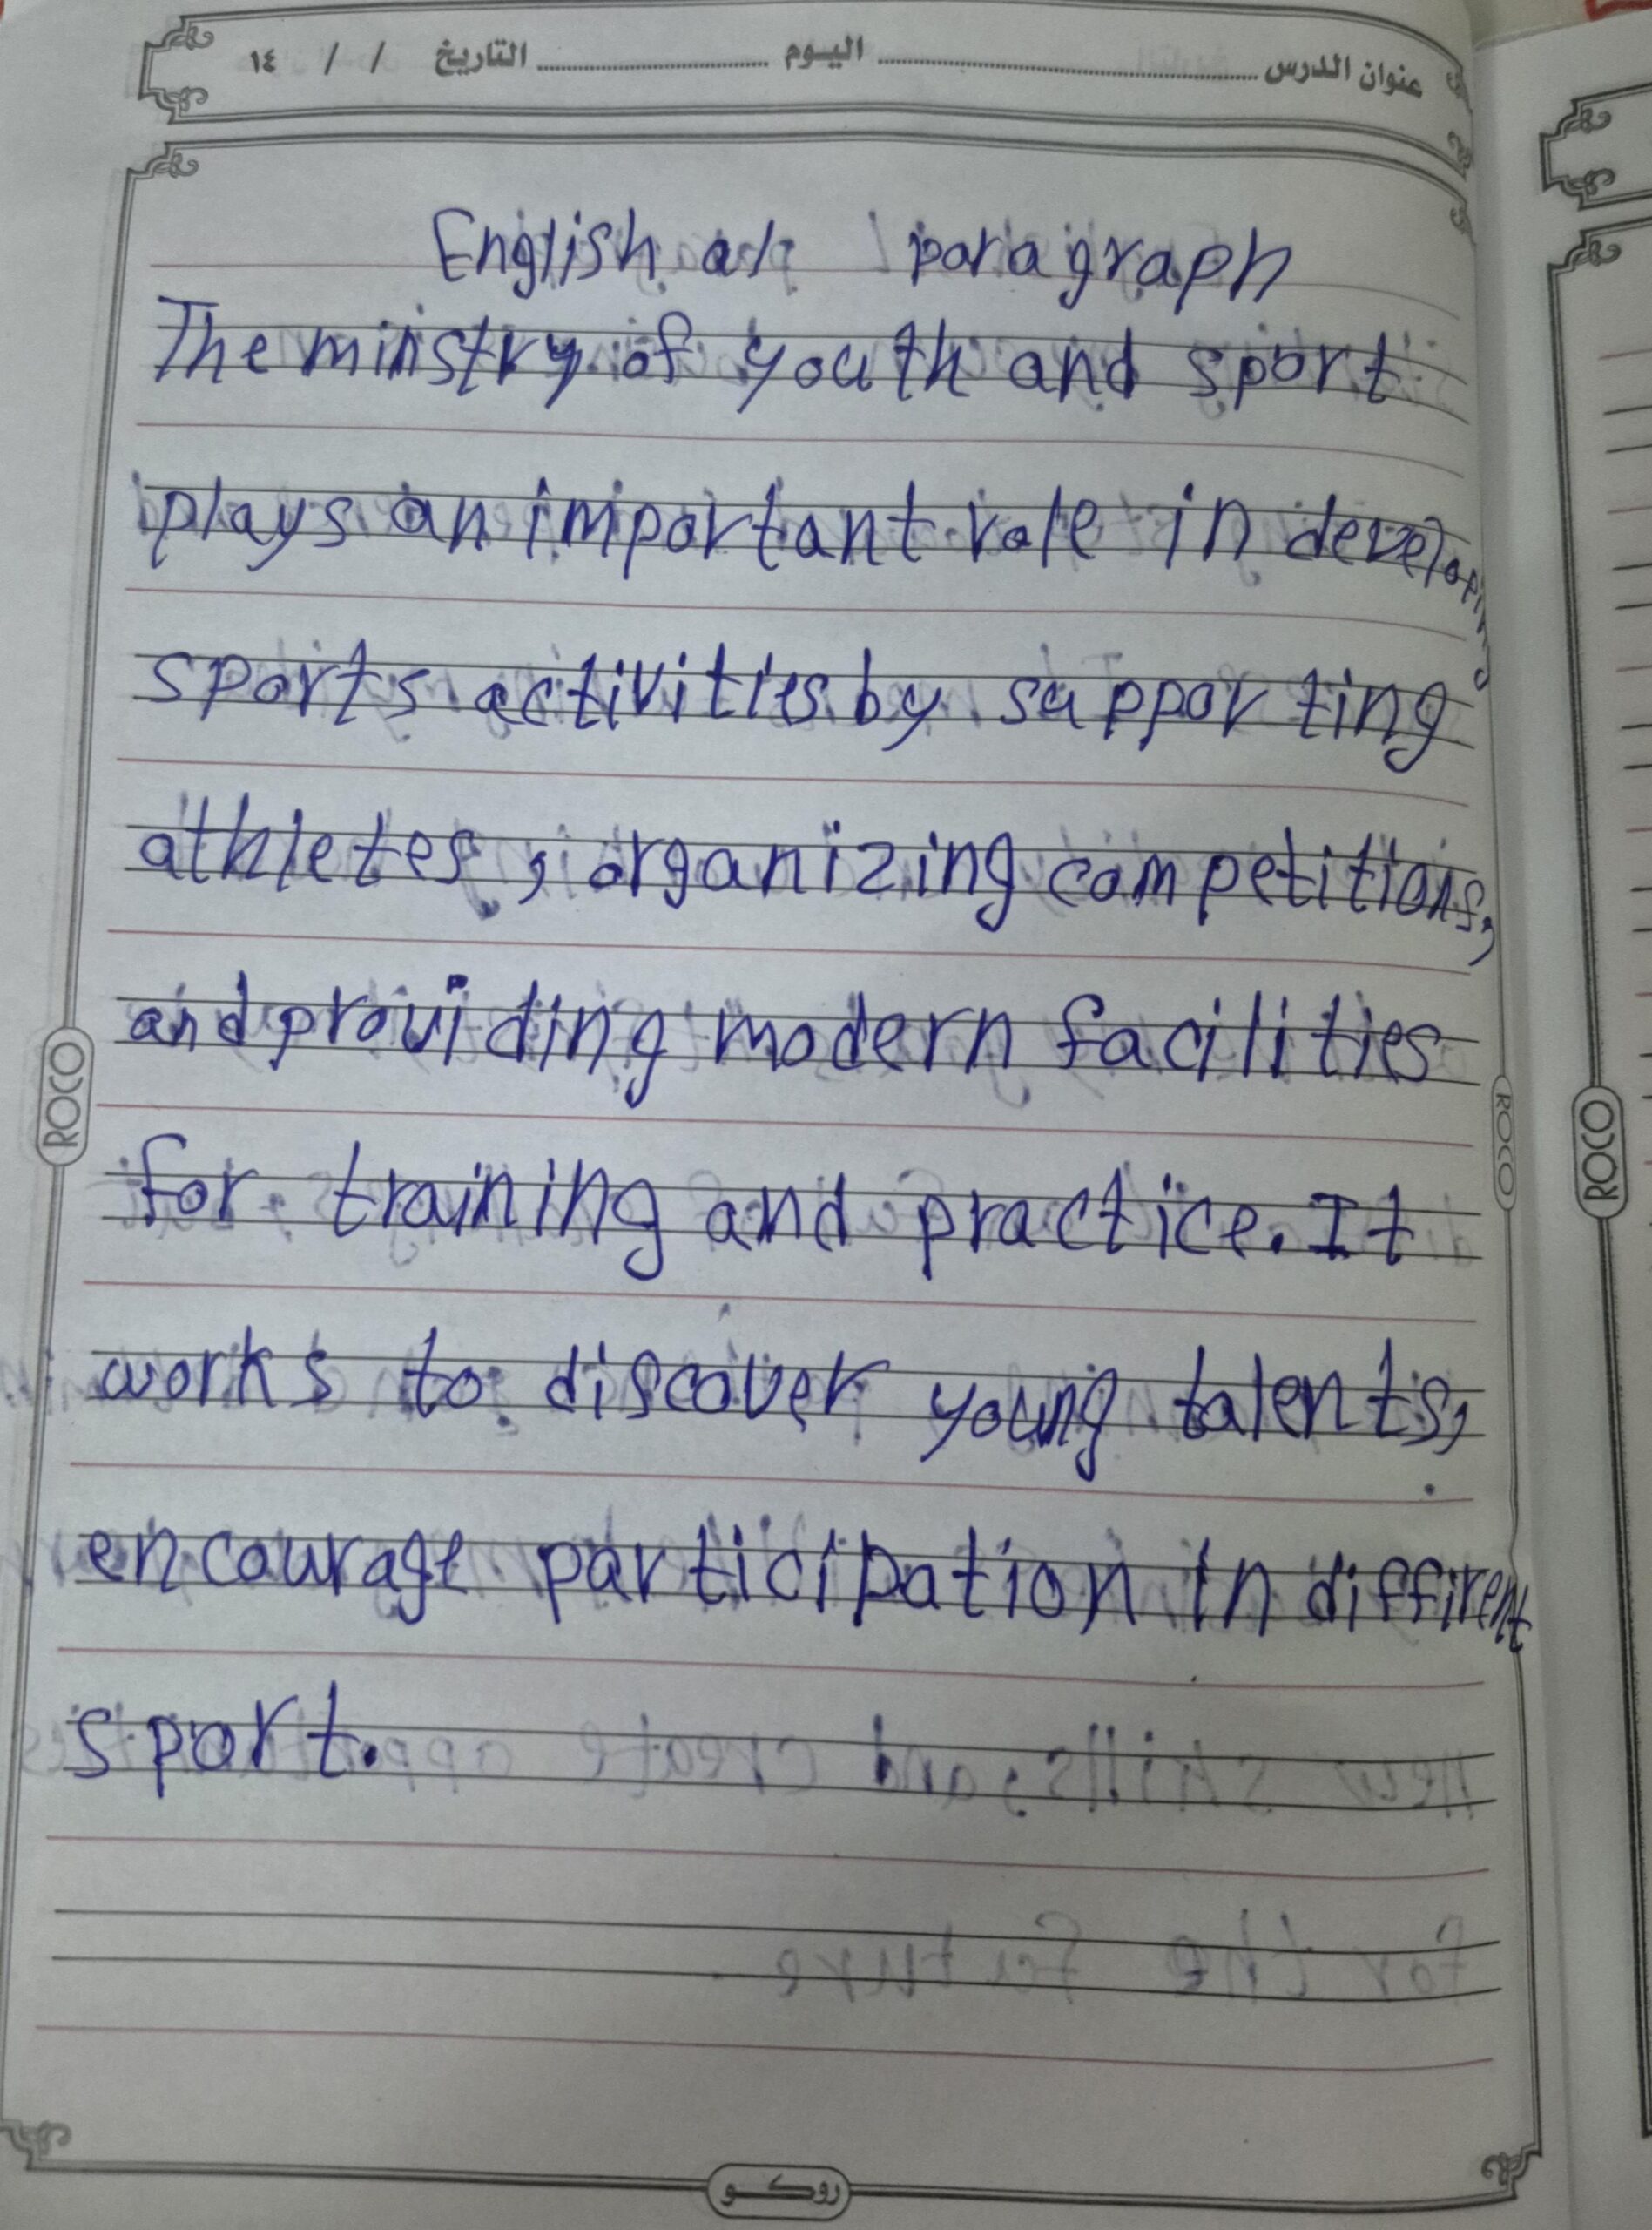 عنوان الدرس اليوم التاريخ / / ١٤
English al paragraph
The minstry of youth and sport
plays an important role in developing
sports activities by supporting
athletes, organizing competitions,
and providing modern facilities
for training and practice. It
works to discover young talents,
encourage participation in diffirent
sport.
ROCO
ROCO
ROCO
روكو